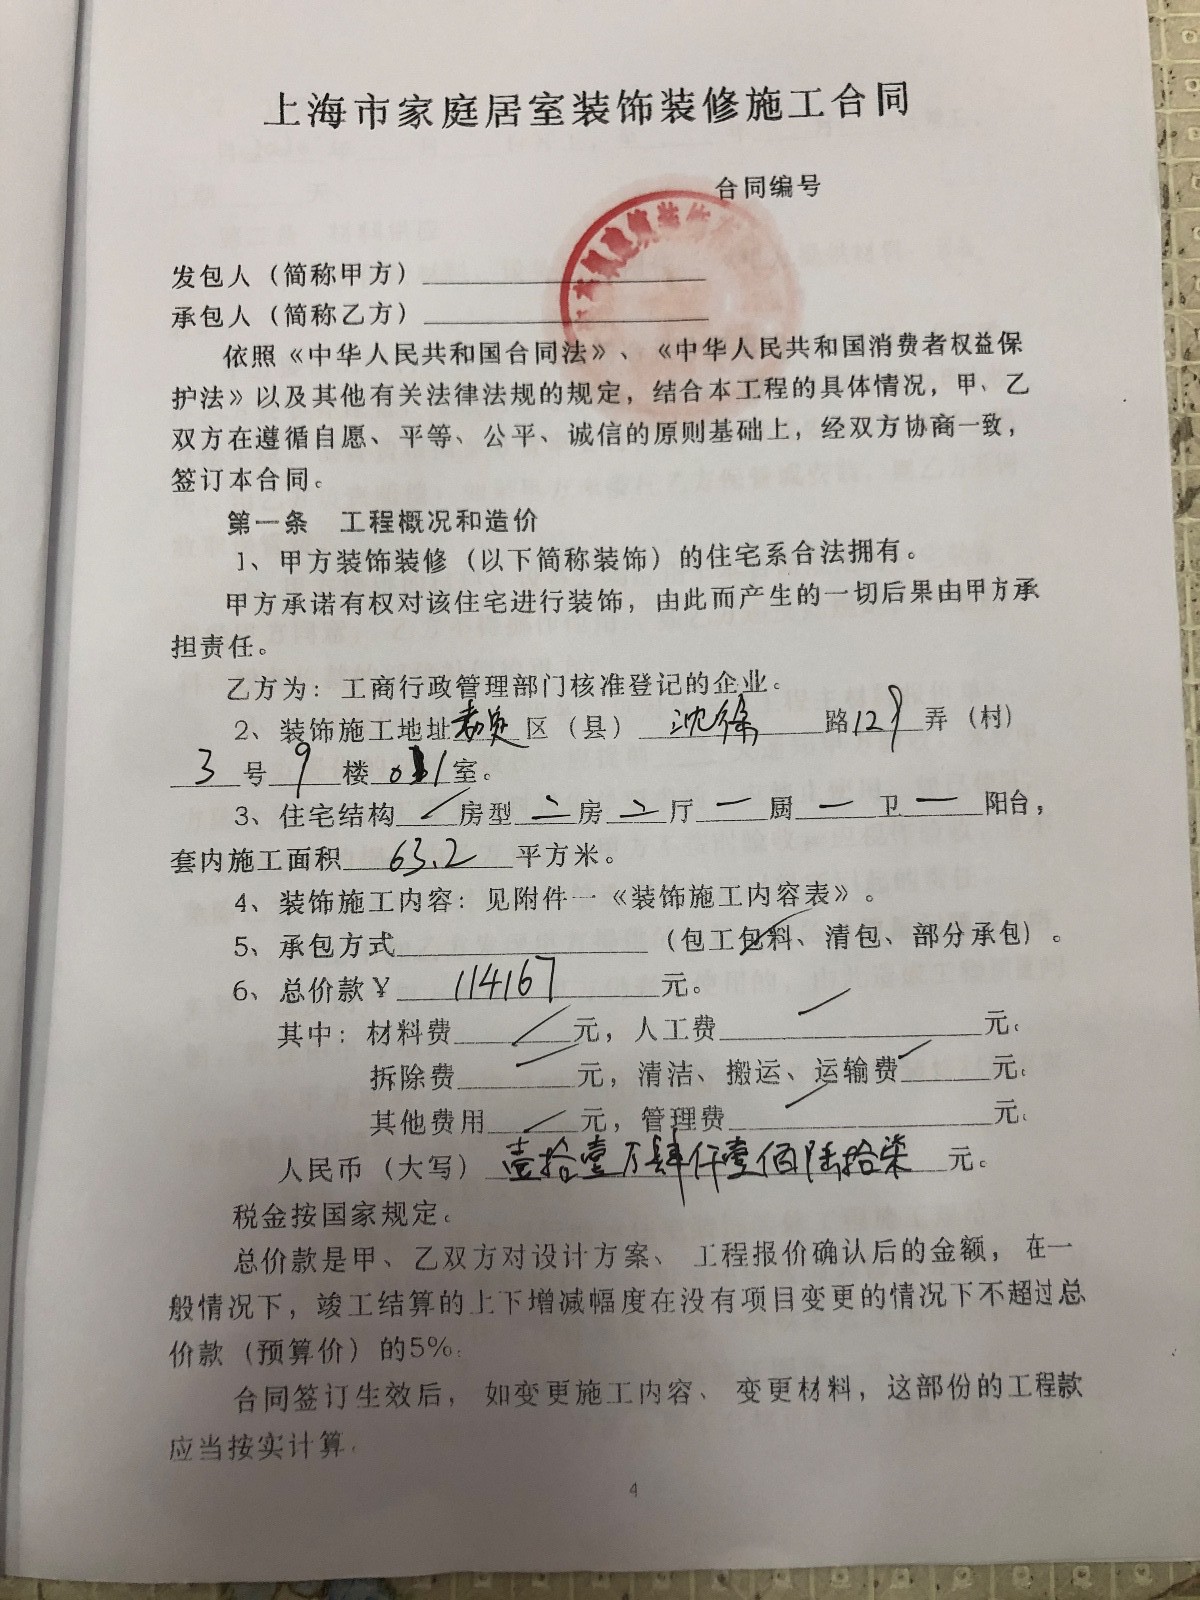 上海市家庭居室装饰装修施工合同
合同编号
建筑装饰
发包人（简称甲方）
承包人（简称乙方）
依照《中华人民共和国合同法》、《中华人民共和国消费者权益保
护法》以及其他有关法律法规的规定，结合本工程的具体情况，甲、乙
双方在遵循自愿、平等、公平、诚信的原则基础上，经双方协商一致，
签订本合同。
第一条 工程概况和造价
1、甲方装饰装修（以下简称装饰）的住宅系合法拥有。
甲方承诺有权对该住宅进行装饰，由此而产生的一切后果由甲方承
担责任。
乙方为：工商行政管理部门核准登记的企业。
2、装饰施工地址 区（县）沈徐路129弄（村）
3号9楼 室。
3、住宅结构 房型二房二厅一厨一卫一阳台，
套内施工面积63.2平方米。
4、装饰施工内容：见附件一《装饰施工内容表》。
5、承包方式（包工包料、清包、部分承包）。
6、总价款￥114167元。
其中：材料费 元，人工费 元。
拆除费 元，清洁、搬运、运输费 元。
其他费用 元，管理费 元。
人民币（大写）壹拾壹万肆仟壹佰陆拾柒元。
税金按国家规定。
总价款是甲、乙双方对设计方案、工程报价确认后的金额，在一
般情况下，竣工结算的上下增减幅度在没有项目变更的情况下不超过总
价款（预算价）的5%。
合同签订生效后，如变更施工内容、变更材料，这部份的工程款
应当按实计算。
4